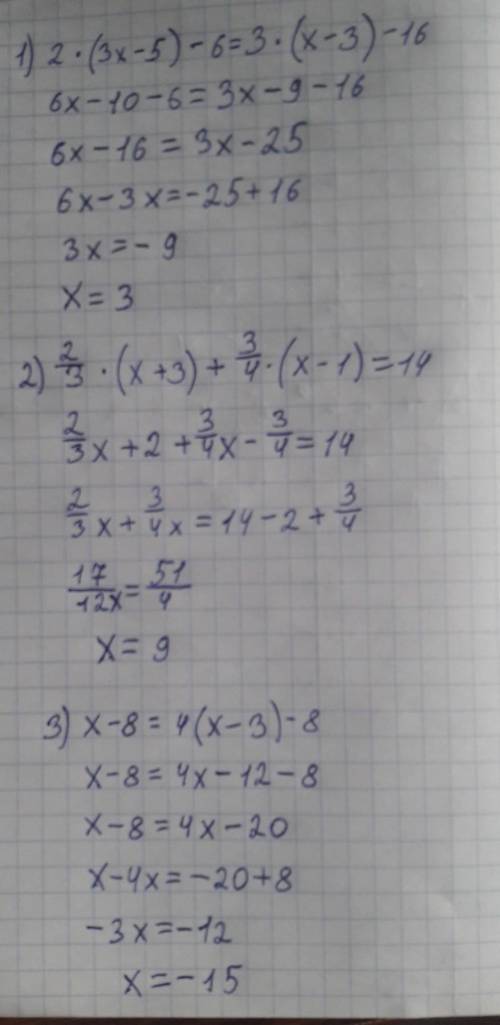 1) 2·(3x-5)-6=3·(x-3)-16
6x-10-6=3x-9-16
6x-16=3x-25
6x-3x=-25+16
3x=-9
x=3
2) 2/3·(x+3)+3/4·(x-1)=14
2/3x+2+3/4x-3/4=14
2/3x+3/4x=14-2+3/4
17/12x=51/4
x=9
3) x-8=4(x-3)-8
x-8=4x-12-8
x-8=4x-20
x-4x=-20+8
-3x=-12
x=-15